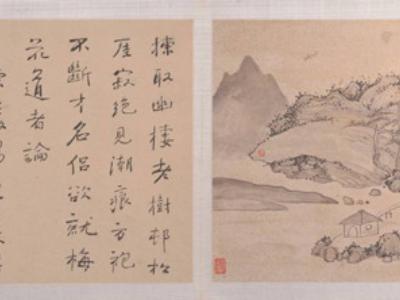 揀取幽棲老樹邨松
厓寂絕見潮痕方袍
不斷才名侶欲就梅
花道者論